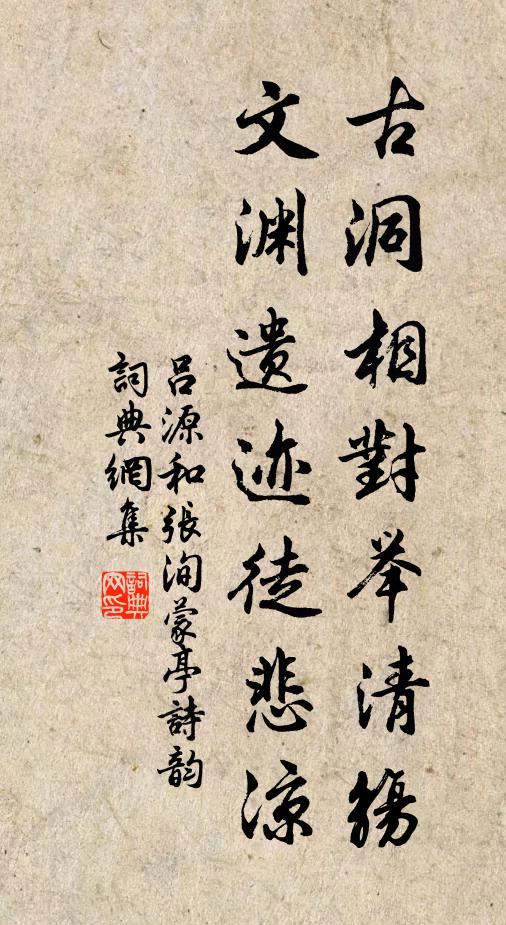 古洞相對举清觴
文渊遗迹徒悲凉
吕源和張洵蒙亭詩韵
詞典網集
詞典网印